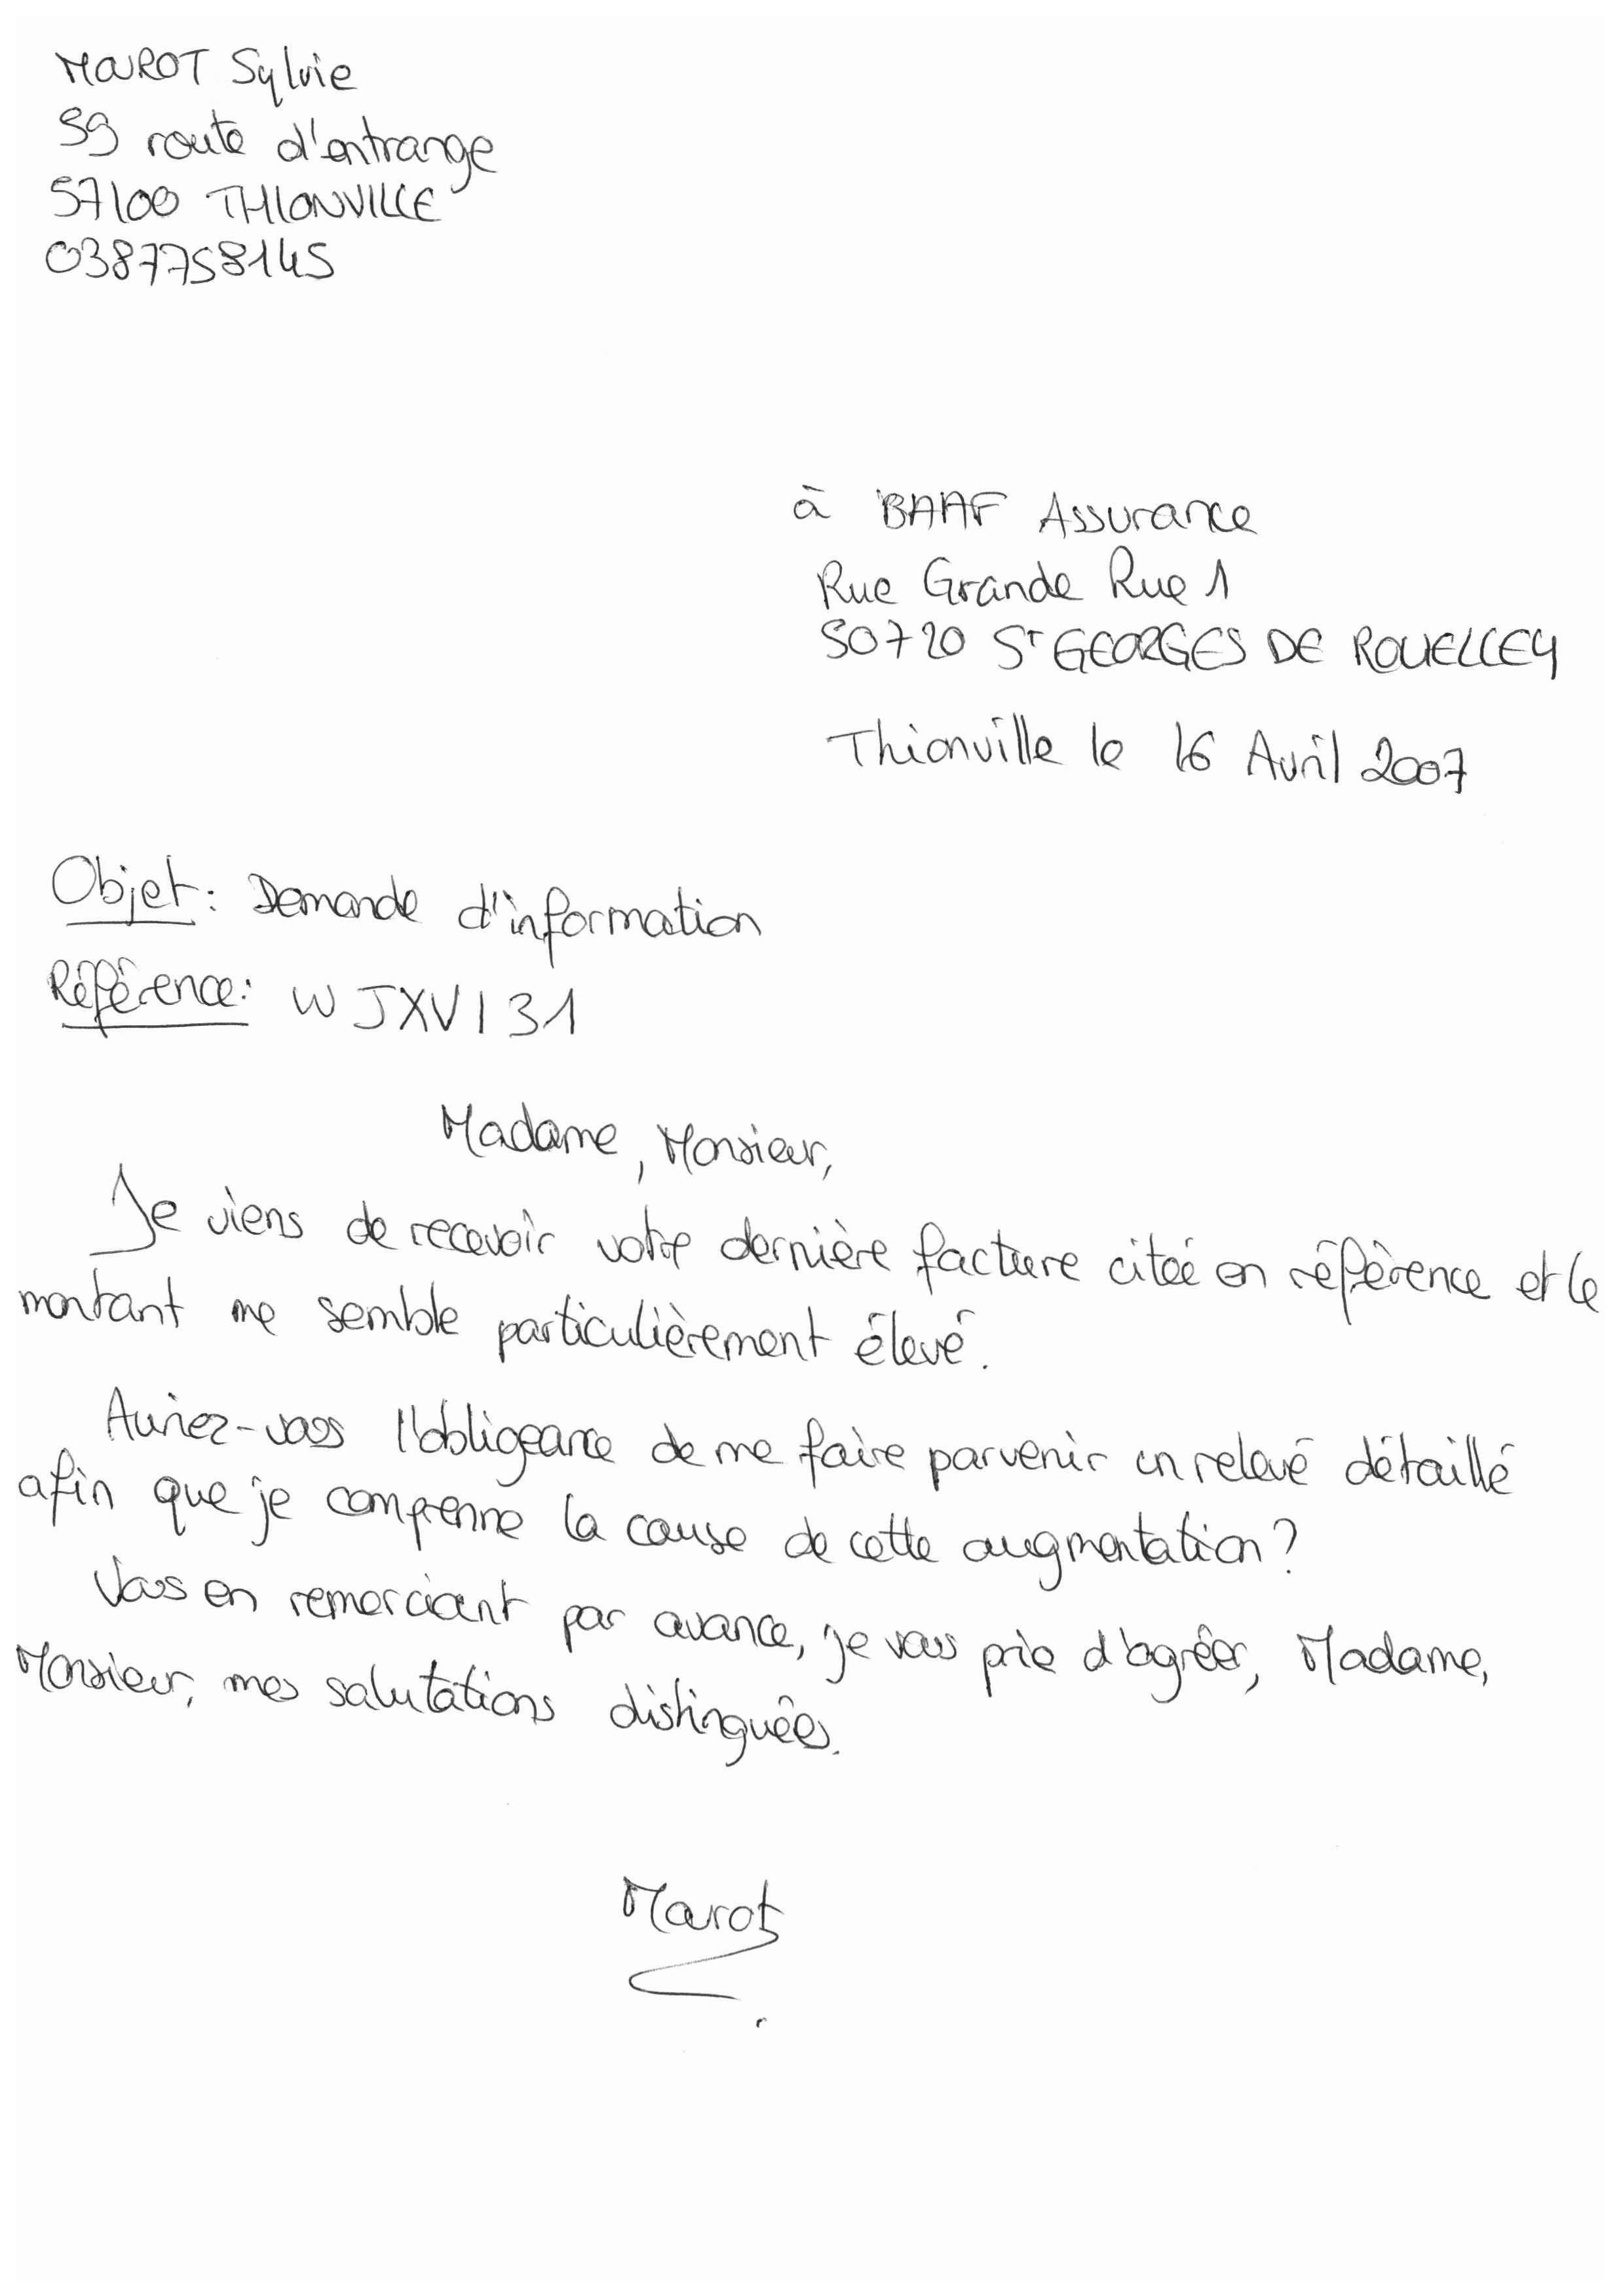 MAROT Sylvie
59 route d'entrange
57100 THIONVILLE
0387758145
à BAAF Assurance
Rue Grande Rue 1
50720 St GEORGES DE ROUELLEY
Thionville le 16 Avril 2007
Objet : Demande d'information
Référence : WJXVI31
Madame, Monsieur,
Je viens de recevoir votre dernière facture citée en référence et le
montant me semble particulièrement élevé.
Auriez-vous l'obligeance de me faire parvenir un relevé détaillé
afin que je comprenne la cause de cette augmentation ?
Vous en remerciant par avance, je vous prie d'agréer, Madame,
Monsieur, mes salutations distinguées.
Marot